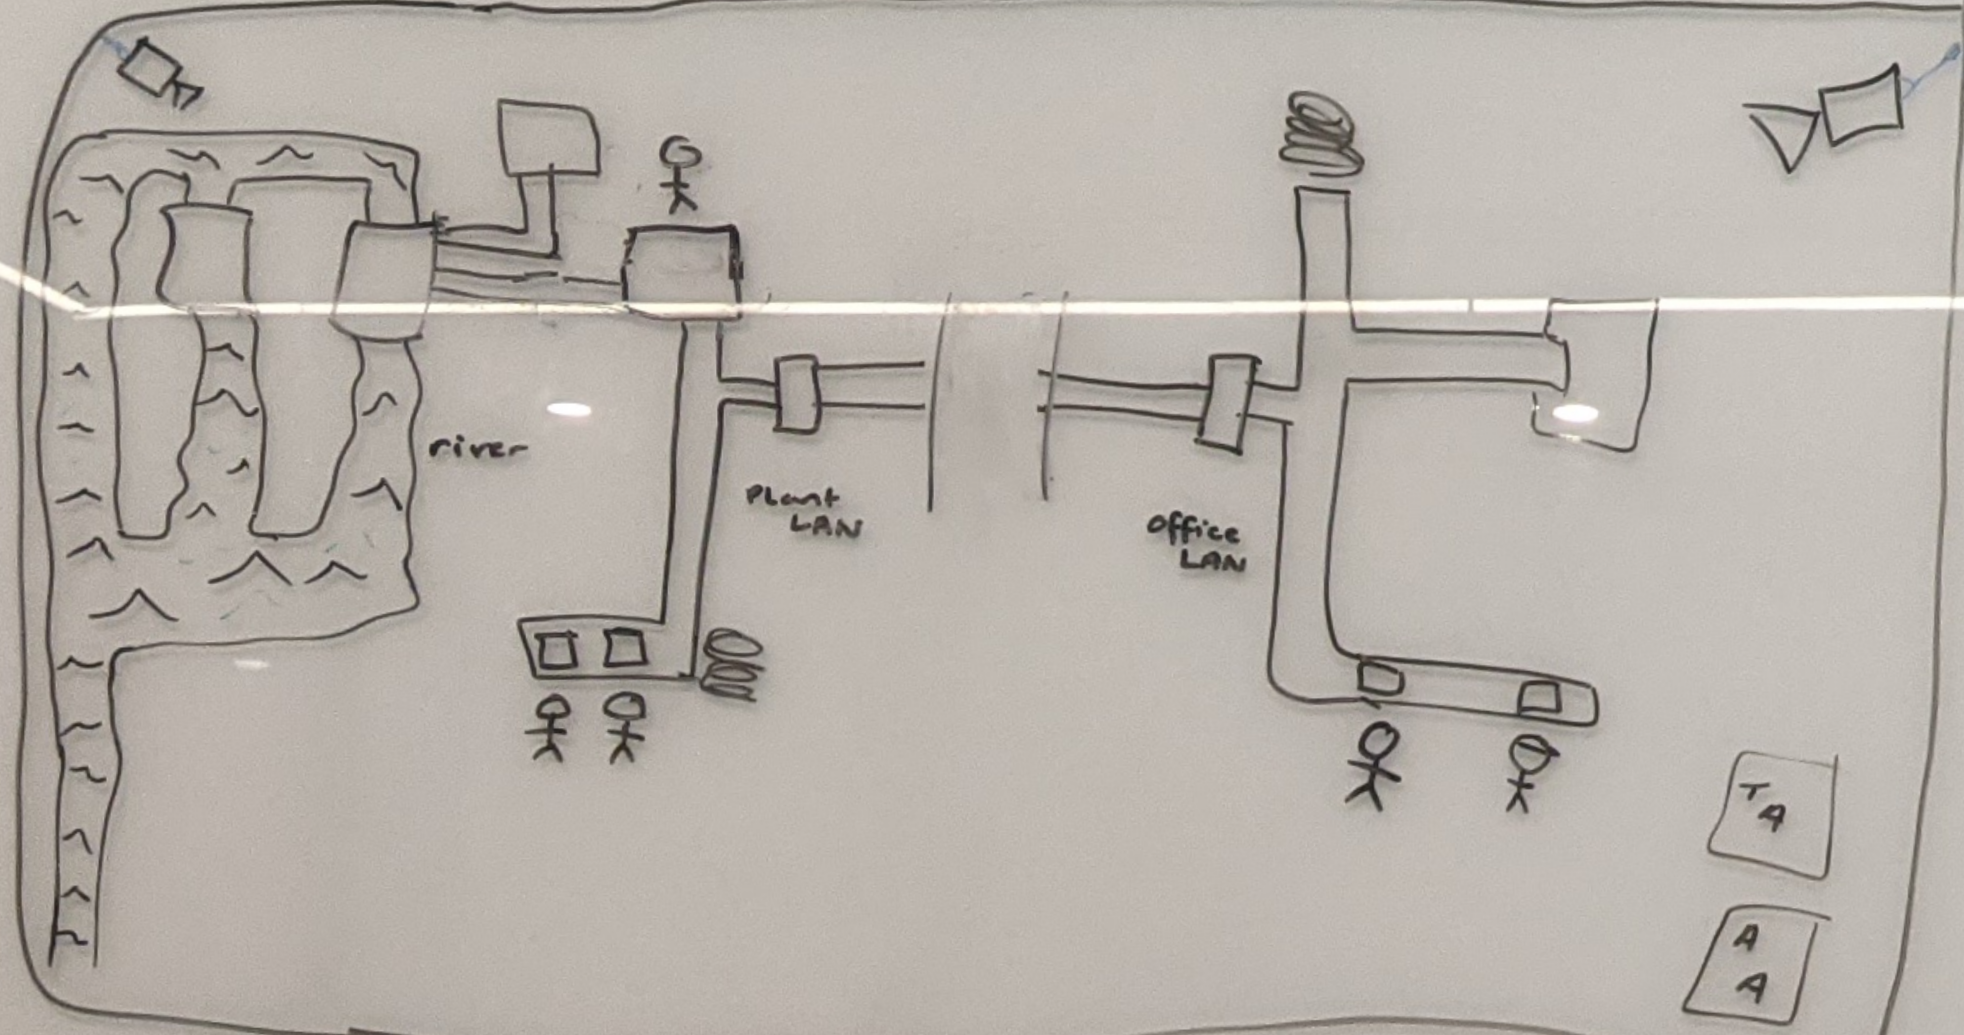 river
Plant
LAN
office
LAN
T
A
A
A